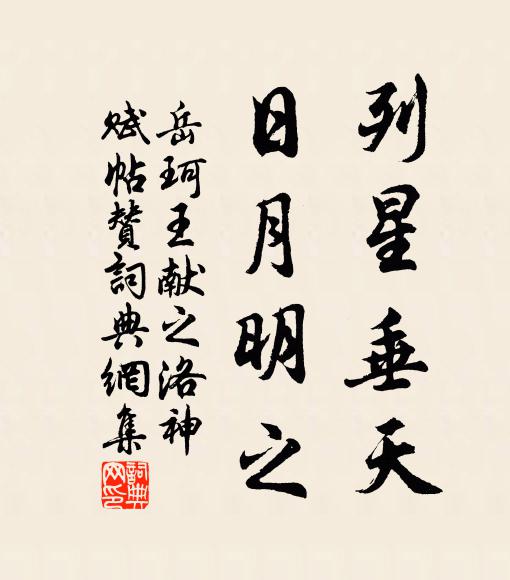 列星垂天
日月明之
岳珂王献之洛神
赋帖賛詞典網集
詞典
网印